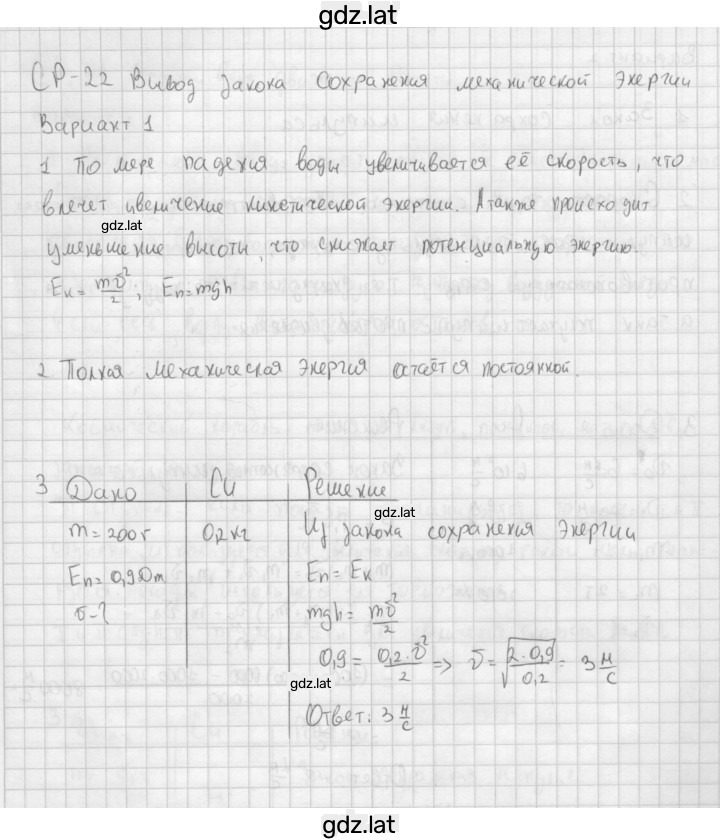 gdz.lat
СР-22 Вывод закона сохранения механической энергии
Вариант 1
1 По мере падения воды увеличивается её скорость, что
влечет увеличение кинетической энергии. А также происходит
gdz.lat
уменьшение высоты, что снижает потенциальную энергию.
Eк = mv²/2; Eп=mgh
2 Полная механическая энергия остаётся постоянной.
3 Дано СИ Решение
gdz.lat
m=200г 0,2кг Из закона сохранения энергии
Eп=0,9Дж Eп=Eк
v-? mgh= mv²/2
0,9 = 0,2·v²/2 => v=√(2·0,9/0,2) = 3 м/с
gdz.lat
Ответ: 3 м/с
gdz.lat